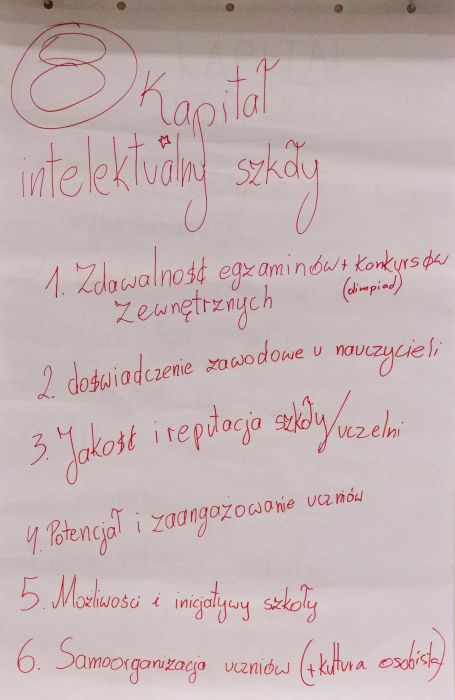 8 Kapitał
intelektualny szkoły
1. Zdawalność egzaminów + konkursów
(olimpiad)
zewnętrznych
2. doświadczenie zawodowe u nauczycieli
3. Jakość i reputacja szkoły/uczelni
4. Potencjał i zaangażowanie uczniów
5. Możliwości i inicjatywy szkoły
6. Samoorganizacja uczniów (+kultura osobista)